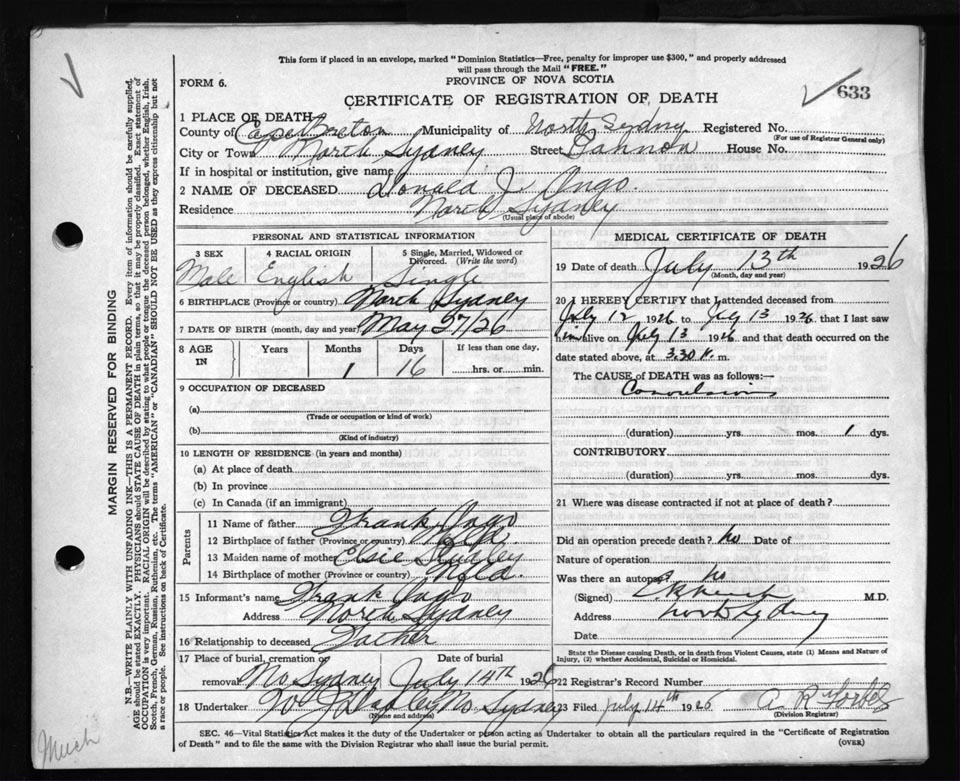 This form if placed in an envelope, marked "Dominion Statistics—Free, penalty for improper use $300," and properly addressed
will pass through the Mail "FREE."
FORM 6.
PROVINCE OF NOVA SCOTIA
633
CERTIFICATE OF REGISTRATION OF DEATH
1 PLACE OF DEATH
County of Cape Breton Municipality of North Sydney Registered No.
(For use of Registrar General only)
City or Town North Sydney Street Cannon House No.
If in hospital or institution, give name
2 NAME OF DECEASED Donald J. Ingo.
Residence North Sydney
(Usual place of abode)
PERSONAL AND STATISTICAL INFORMATION
3 SEX 4 RACIAL ORIGIN 5 Single, Married, Widowed or Divorced. (Write the word)
Male English Single
6 BIRTHPLACE (Province or country) North Sydney
7 DATE OF BIRTH (month, day and year) May 27/26
8 AGE IN Years Months Days If less than one day,
1 16 hrs. or min.
9 OCCUPATION OF DECEASED
(a)
(Trade or occupation or kind of work)
(b)
(Kind of industry)
10 LENGTH OF RESIDENCE (in years and months)
(a) At place of death
(b) In province
(c) In Canada (if an immigrant)
Parents
11 Name of father Frank Ingo
12 Birthplace of father (Province or country) Nfld.
13 Maiden name of mother Elsie
14 Birthplace of mother (Province or country) Nfld.
15 Informant's name Frank Ingo
Address North Sydney
16 Relationship to deceased Father
17 Place of burial, cremation or removal Date of burial
No Sydney July 14th 1926
18 Undertaker No Sydney
(Name and address)
MEDICAL CERTIFICATE OF DEATH
19 Date of death July 13th 1926
(Month, day and year)
20 I HEREBY CERTIFY that I attended deceased from
July 12 1926 to July 13 1926 that I last saw
him alive on July 13 1926 and that death occurred on the
date stated above, at 3.30 m.
The CAUSE of DEATH was as follows:—
Convulsions
(duration) yrs. mos. 1 dys.
CONTRIBUTORY
(duration) yrs. mos. dys.
21 Where was disease contracted if not at place of death?
Did an operation precede death? No Date of
Nature of operation
Was there an autopsy No
(Signed) M.D.
Address North Sydney
Date
State the Disease causing Death, or in death from Violent Causes, state (1) Means and Nature of
Injury, (2) whether Accidental, Suicidal or Homicidal.
22 Registrar's Record Number
23 Filed July 14th 1926 A. R. Forbes
(Division Registrar)
SEC. 46—Vital Statistics Act makes it the duty of the Undertaker or person acting as Undertaker to obtain all the particulars required in the "Certificate of Registration
of Death" and to file the same with the Division Registrar who shall issue the burial permit.
(OVER)
MARGIN RESERVED FOR BINDING
N.B.—WRITE PLAINLY WITH UNFADING INK—THIS IS A PERMANENT RECORD. Every item of information should be carefully supplied.
AGE should be stated EXACTLY. PHYSICIANS should STATE CAUSE OF DEATH in plain terms, so that it may be properly classified. Exact statement of
OCCUPATION is very important. RACIAL ORIGIN will be described by stating to what people or tongue the deceased person belonged, whether English, Irish,
Scotch, French, German, Russian, Ruthenian, etc. The terms "AMERICAN" or "CANADIAN" SHOULD NOT BE USED as they express citizenship but not
a race or people. See instructions on back of Certificate.